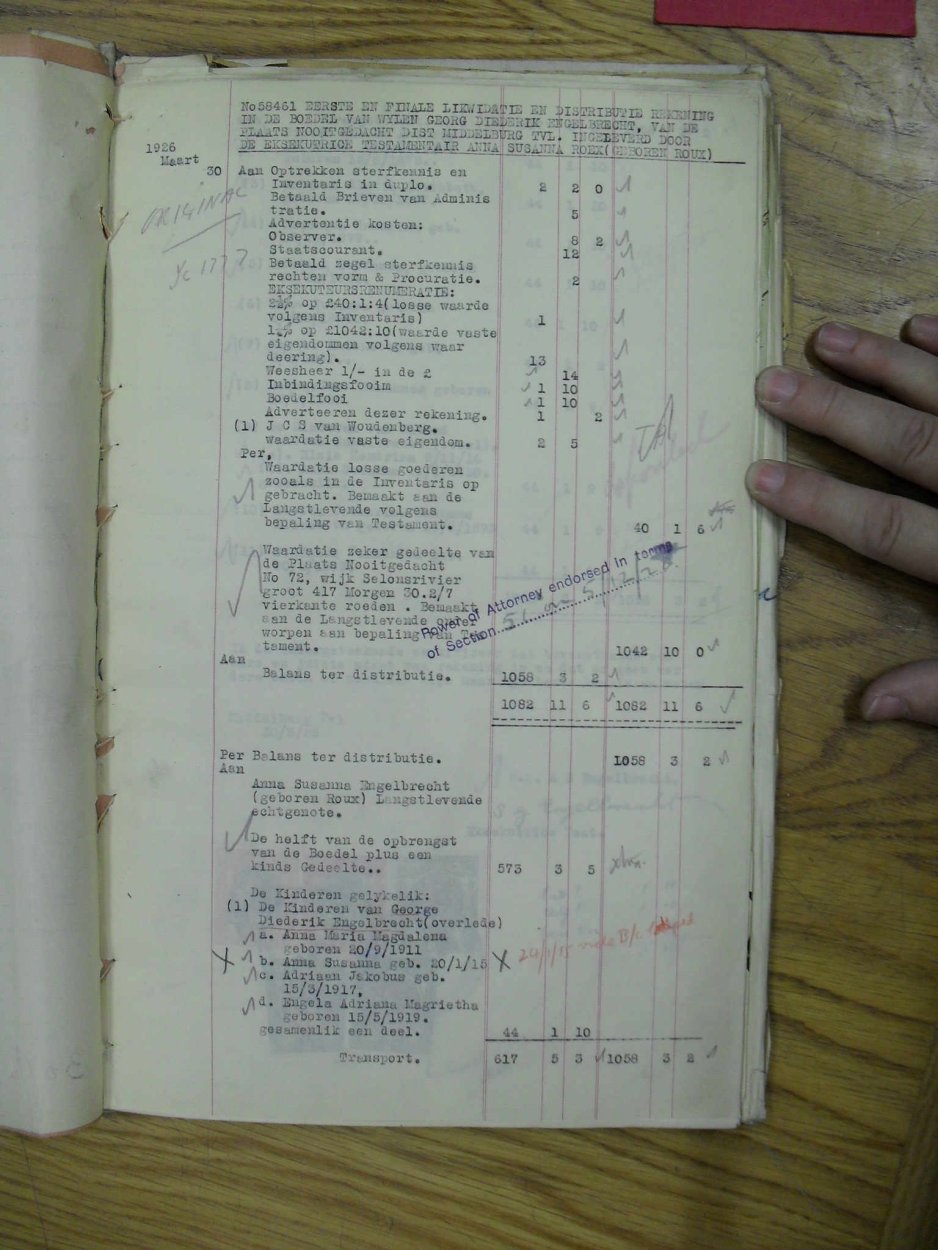 No58461 EERSTE EN FINALE LIKWIDATIE EN DISTRIBUTIE REKENING
IN DE BOEDEL VAN WYLEN GEORG DIEDERIK ENGELBRECHT, VAN DE
PLAATS NOOITGEDACHT DIST MIDDELBURG TVL. INGELEVERD DOOR
DE EKSEKUTRICE TESTAMENTAIR ANNA SUSANNA ROEX(GEBOREN ROUX)
1926
Maart
30 Aan Optrekken sterfkennis en
Inventaris in duplo. 2 2 0
Betaald Brieven van Adminis
tratie. 5
ORIGINAL
Advertentie kosten:
Observer. 8 2
Staatscourant. 12
Betaald zegel sterfkennis
rechten vorm & Procuratie. 2
EKSEKUTEURSRENUMERATIE:
2½% op £40:1:4(losse waarde
volgens Inventaris) 1
1¼% op £1042:10(waarde vaste
eigendommen volgens waar
deering). 13
Weesheer 1/- in de £ 14
Inbindingsfooim 1 10
Boedelfooi 1 10
Adverteeren dezer rekening. 1 2
(1) J C S van Woudenberg.
waardatie vaste eigendom. 2 5
Per,
Waardatie losse goederen
zooals in de Inventaris op
gebracht. Bemaakt aan de
Langstlevende volgens
bepaling van Testament. 40 1 6
Waardatie zeker gedeelte van
de Plaats Nooitgedacht
No 72, wijk Selonsrivier
groot 417 Morgen 30.2/7
vierkante roeden . Bemaakt
aan de Langstlevende onder
worpen aan bepaling van Tes
tament. 1042 10 0
Power of Attorney endorsed in terms
of Section
Aan
Balans ter distributie. 1058 3 2
1082 11 6 1082 11 6
Per Balans ter distributie. 1058 3 2
Aan
Anna Susanna Engelbrecht
(geboren Roux) Langstlevende
echtgenote.
De helft van de opbrengst
van de Boedel plus een
kinds Gedeelte.. 573 3 5
De Kinderen gelykelik:
(1) De Kinderen van George
Diederik Engelbrecht(overlede)
a. Anna Maria Magdalena
geboren 20/9/1911
X b. Anna Susanna geb. 20/1/15 X 20/1/15 vide B/c
c. Adriaan Jakobus geb.
15/3/1917,
d. Engela Adriana Magrietha
geboren 15/5/1919.
gesamenlik een deel. 44 1 10
Transport. 617 5 3 1058 3 2